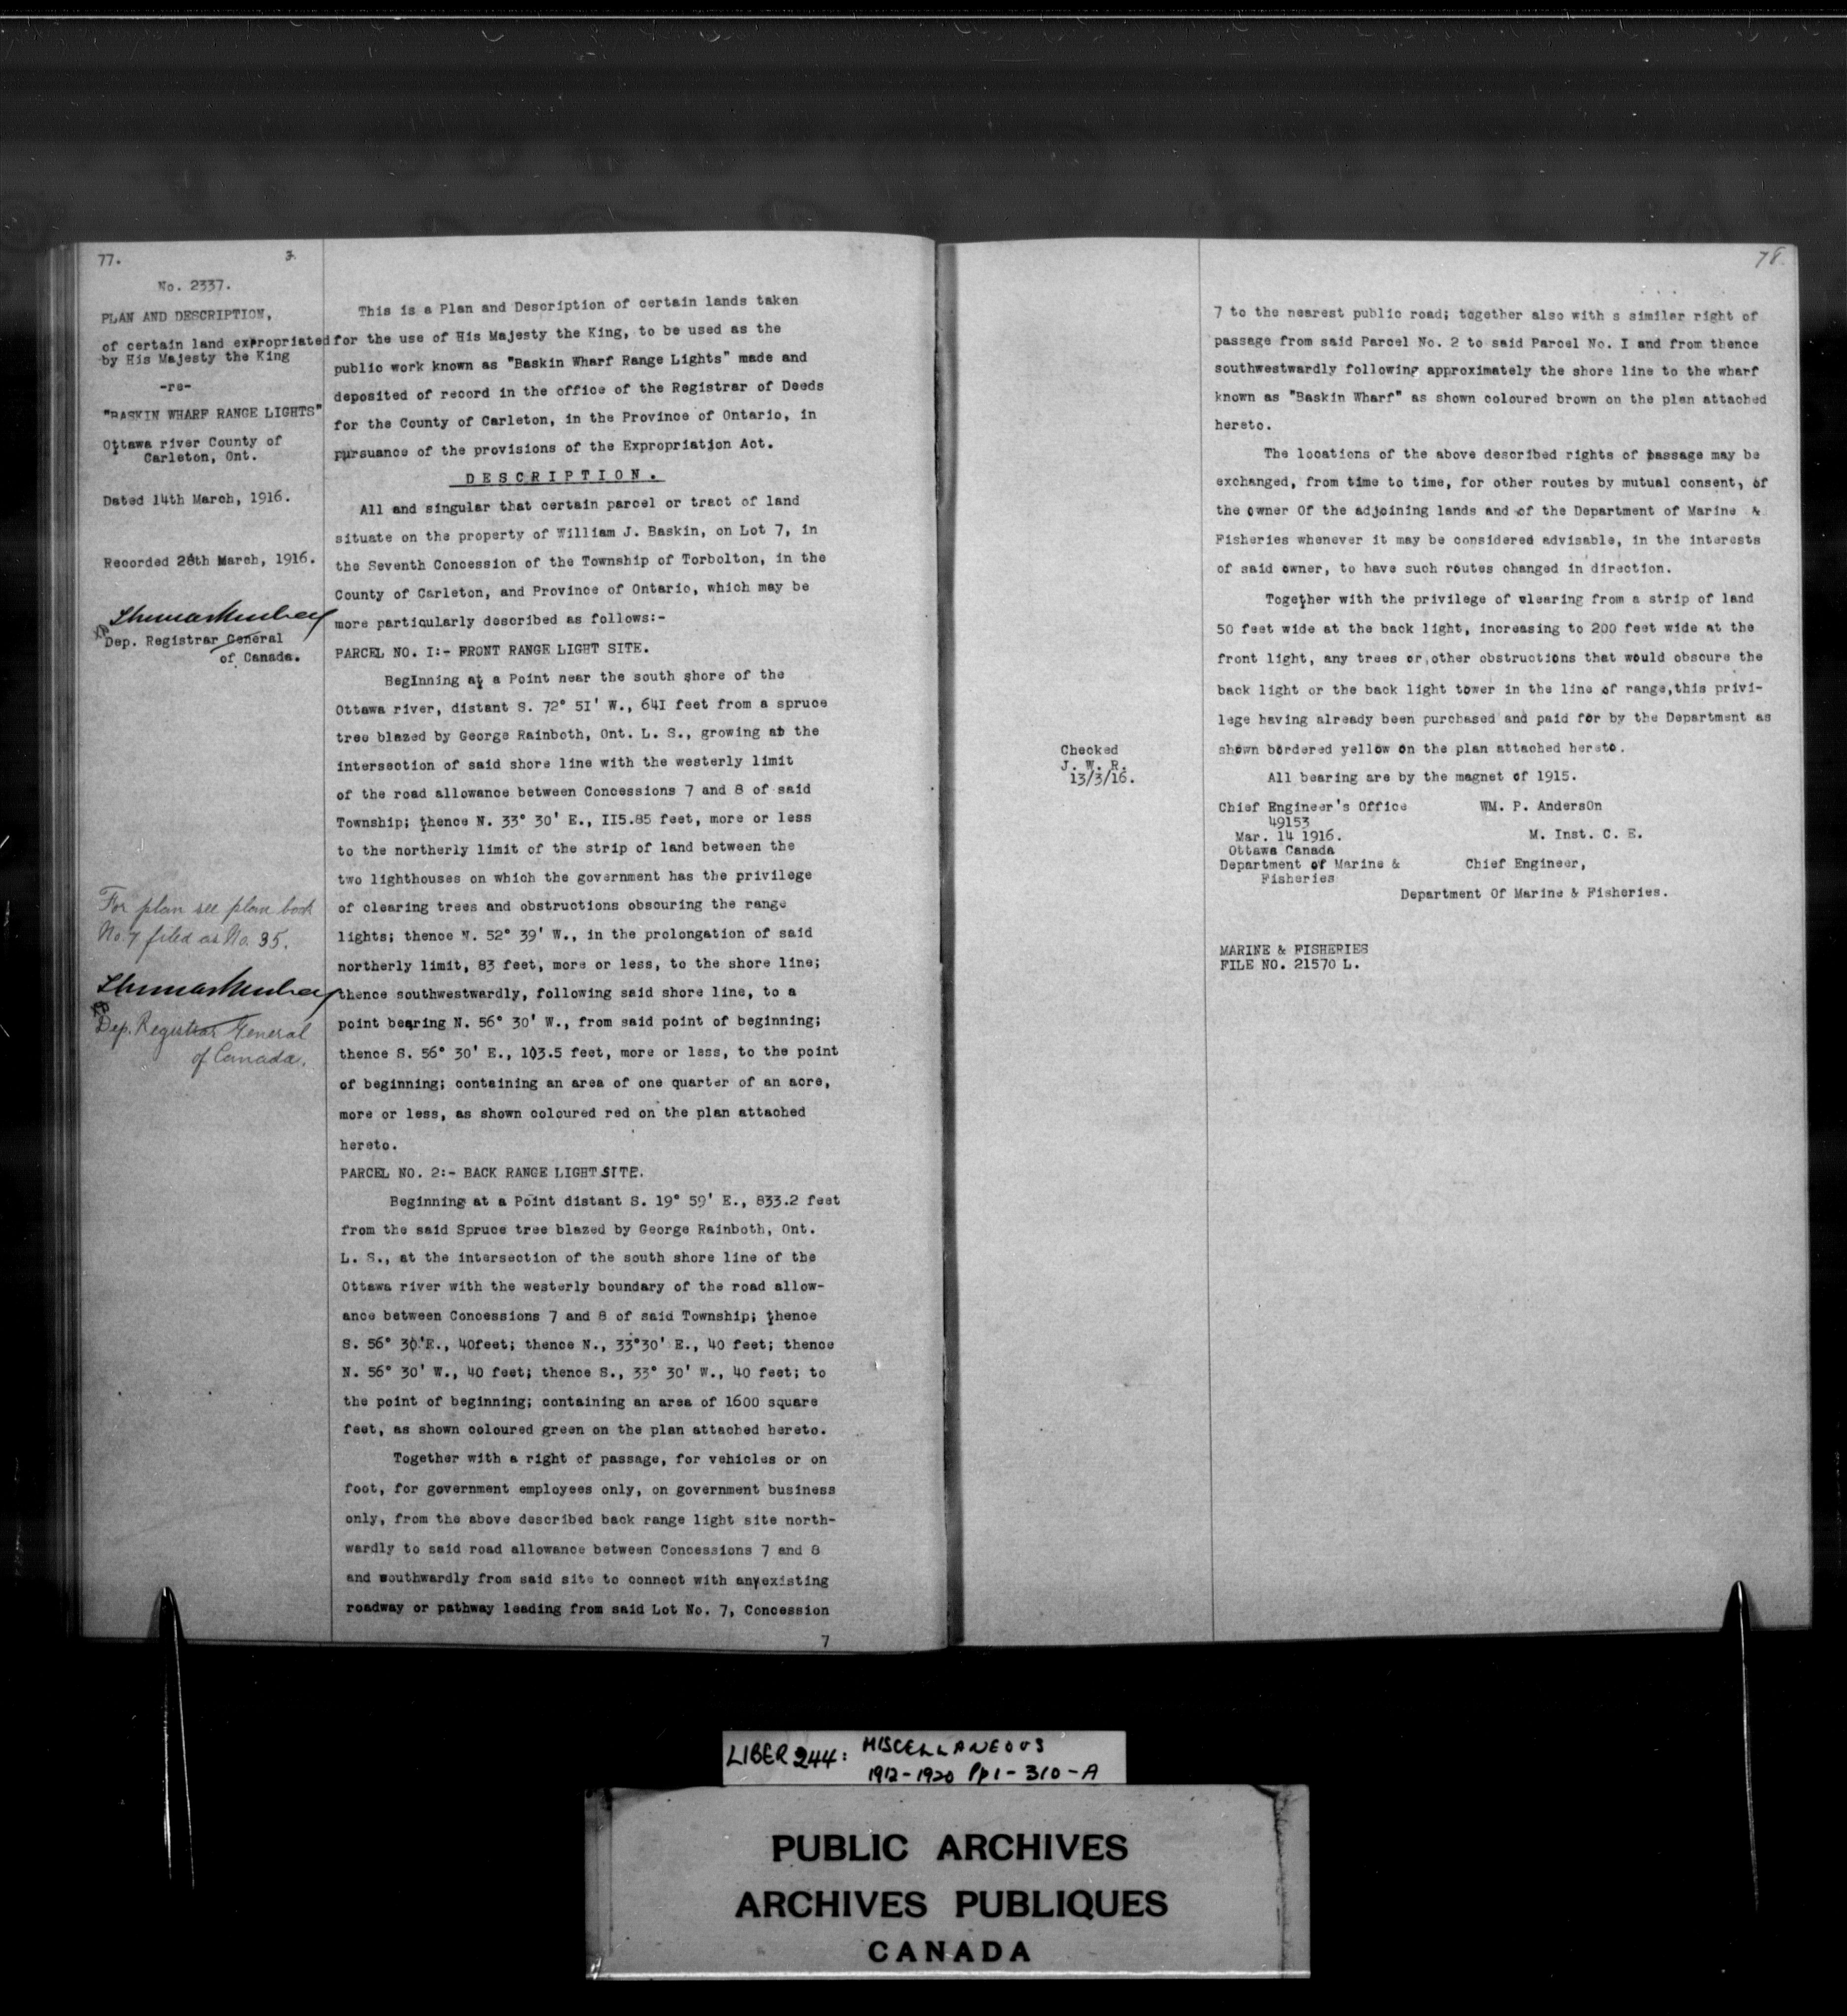 77.
3.
No. 2337.
PLAN AND DESCRIPTION,
of certain land expropriated
by His Majesty the King
-re-
"BASKIN WHARF RANGE LIGHTS"
Ottawa river County of
Carleton, Ont.
Dated 14th March, 1916.
Recorded 28th March, 1916.
Dep. Registrar General
of Canada.
For plan see plan book
No. 7 filed as No. 35.
Dep. Registrar General
of Canada.
This is a Plan and Description of certain lands taken
for the use of His Majesty the King, to be used as the
public work known as "Baskin Wharf Range Lights" made and
deposited of record in the office of the Registrar of Deeds
for the County of Carleton, in the Province of Ontario, in
pursuance of the provisions of the Expropriation Act.
DESCRIPTION.
All and singular that certain parcel or tract of land
situate on the property of William J. Baskin, on Lot 7, in
the Seventh Concession of the Township of Torbolton, in the
County of Carleton, and Province of Ontario, which may be
more particularly described as follows:-
PARCEL NO. I:- FRONT RANGE LIGHT SITE.
BegInning at a Point near the south shore of the
Ottawa river, distant S. 72° 5I' W., 64I feet from a spruce
tree blazed by George Rainboth, Ont. L. S., growing at the
intersection of said shore line with the westerly limit
of the road allowance between Concessions 7 and 8 of said
Township; thence N. 33° 30' E., II5.85 feet, more or less
to the northerly limit of the strip of land between the
two lighthouses on which the government has the privilege
of clearing trees and obstructions obscuring the range
lights; thence N. 52° 39' W., in the prolongation of said
northerly limit, 83 feet, more or less, to the shore line;
thence southwestwardly, following said shore line, to a
point bearing N. 56° 30' W., from said point of beginning;
thence S. 56° 30' E., 103.5 feet, more or less, to the point
of beginning; containing an area of one quarter of an acre,
more or less, as shown coloured red on the plan attached
hereto.
PARCEL NO. 2:- BACK RANGE LIGHT SITE.
Beginning at a Point distant S. 19° 59' E., 833.2 feet
from the said Spruce tree blazed by George Rainboth, Ont.
L. S., at the intersection of the south shore line of the
Ottawa river with the westerly boundary of the road allow-
ance between Concessions 7 and 8 of said Township; thence
S. 56° 30'E., 40feet; thence N., 33°30' E., 40 feet; thence
N. 56° 30' W., 40 feet; thence S., 33° 30' W., 40 feet; to
the point of beginning; containing an area of 1600 square
feet, as shown coloured green on the plan attached hereto.
Together with a right of passage, for vehicles or on
foot, for government employees only, on government business
only, from the above described back range light site north-
wardly to said road allowance between Concessions 7 and 8
and southwardly from said site to connect with anyexisting
roadway or pathway leading from said Lot No. 7, Concession
7
78
7 to the nearest public road; together also with s similar right of
passage from said Parcel No. 2 to said Parcel No. I and from thence
southwestwardly following approximately the shore line to the wharf
known as "Baskin Wharf" as shown coloured brown on the plan attached
hereto.
The locations of the above described rights of passage may be
exchanged, from time to time, for other routes by mutual consent, of
the owner Of the adjoining lands and of the Department of Marine &
Fisheries whenever it may be considered advisable, in the interests
of said owner, to have such routes changed in direction.
Together with the privilege of clearing from a strip of land
50 feet wide at the back light, increasing to 200 feet wide at the
front light, any trees or other obstructions that would obscure the
back light or the back light tower in the line of range,this privi-
lege having already been purchased and paid for by the Department as
shown bordered yellow on the plan attached hereto.
All bearing are by the magnet of 1915.
Checked
J. W. R.
13/3/16.
Chief Engineer's Office
49153
Mar. 14 1916.
Ottawa Canada
Department of Marine &
Fisheries
WM. P. AndersOn
M. Inst. C. E.
Chief Engineer,
Department Of Marine & Fisheries.
MARINE & FISHERIES
FILE NO. 21570 L.
LIBER 244: MISCELLANEOUS
1912-1920 Pp 1-310-A
PUBLIC ARCHIVES
ARCHIVES PUBLIQUES
CANADA